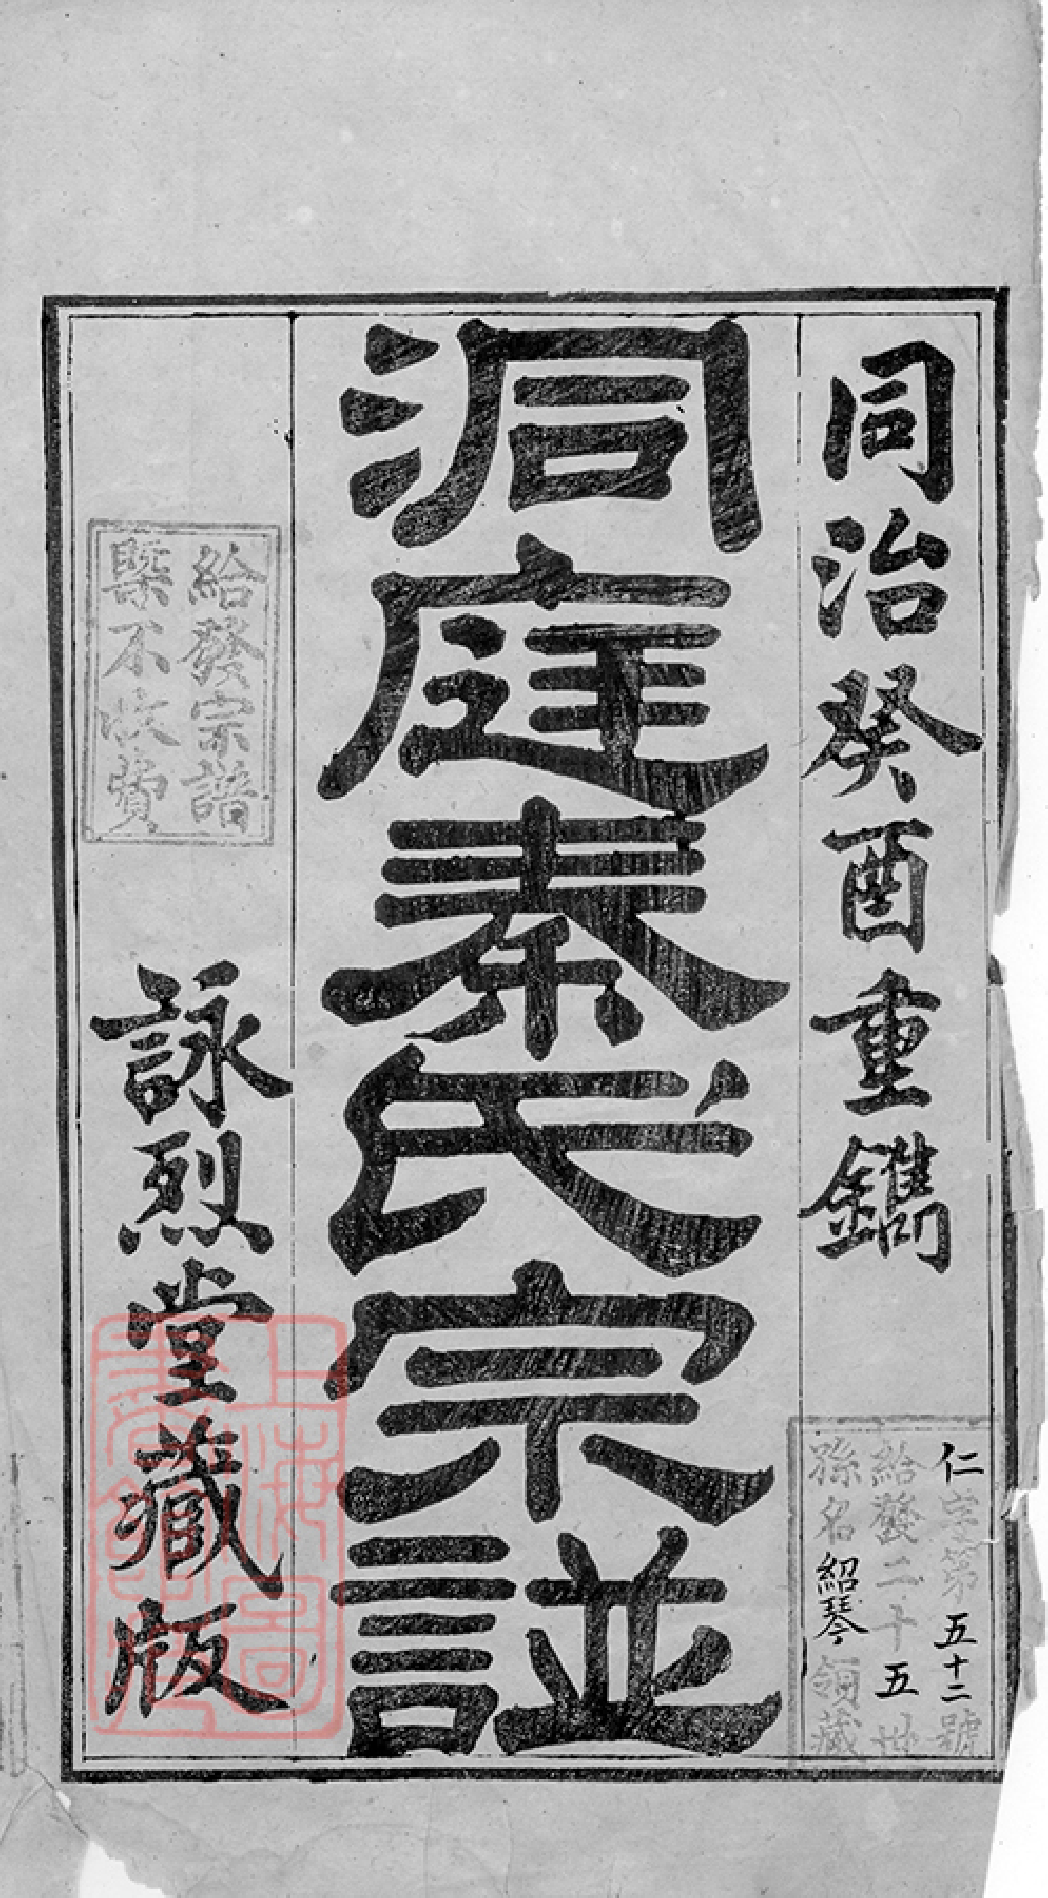 同治癸酉重鐫
仁字第五十二號
給發二十五世
孫名紹琴領藏
洞庭秦氏宗譜
給發宗譜
槩不收費
詠烈堂藏版